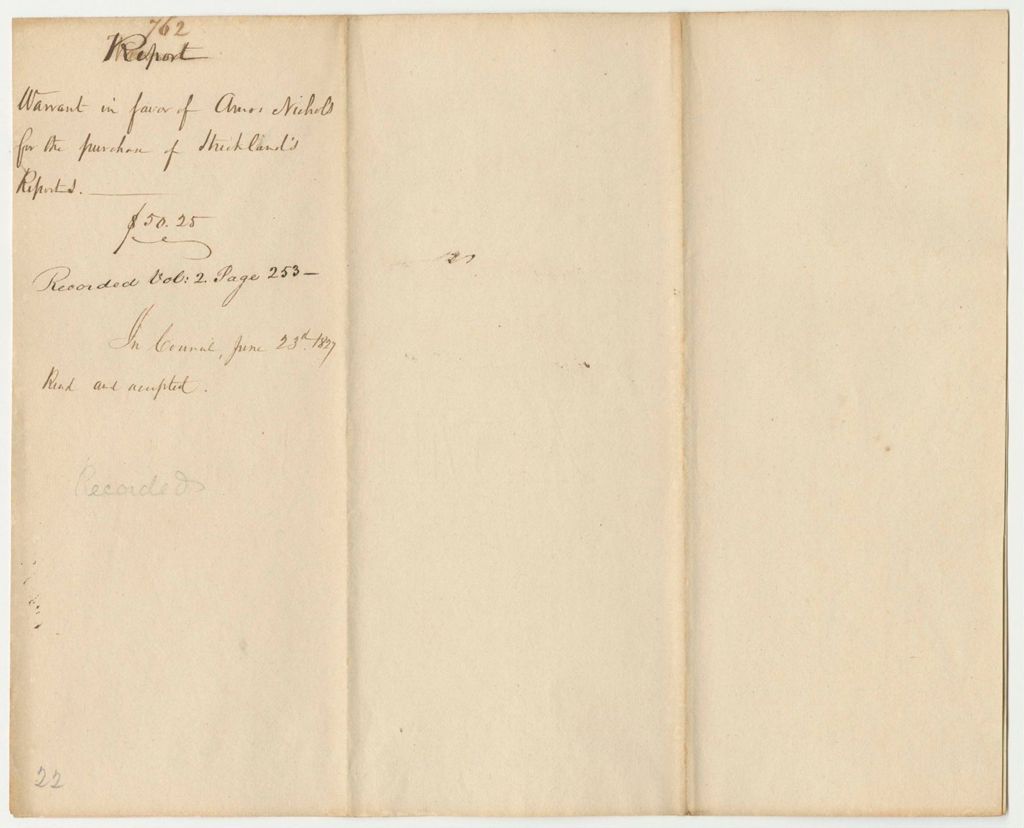 762
Report
Warrant in favor of Amos Nichols
for the purchase of Strickland's
Reports.
$50.25
Recorded Vol: 2. Page 253—
In Council, June 23d. 1827
Read and accepted.
Recorded
22